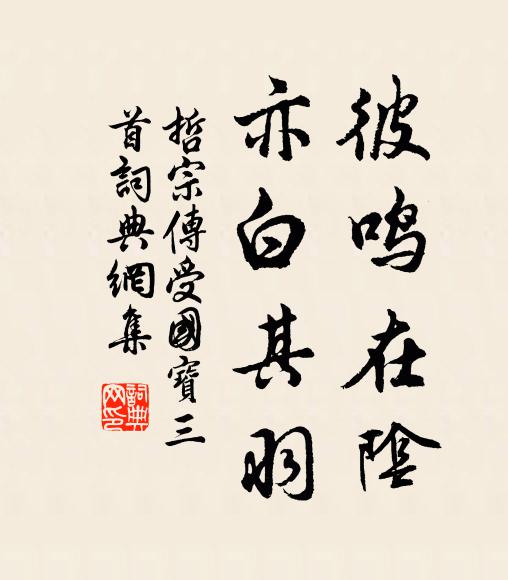 彼鸣在陰
亦白其羽
哲宗傳受國寶三
首詞典網集
詞典
网印